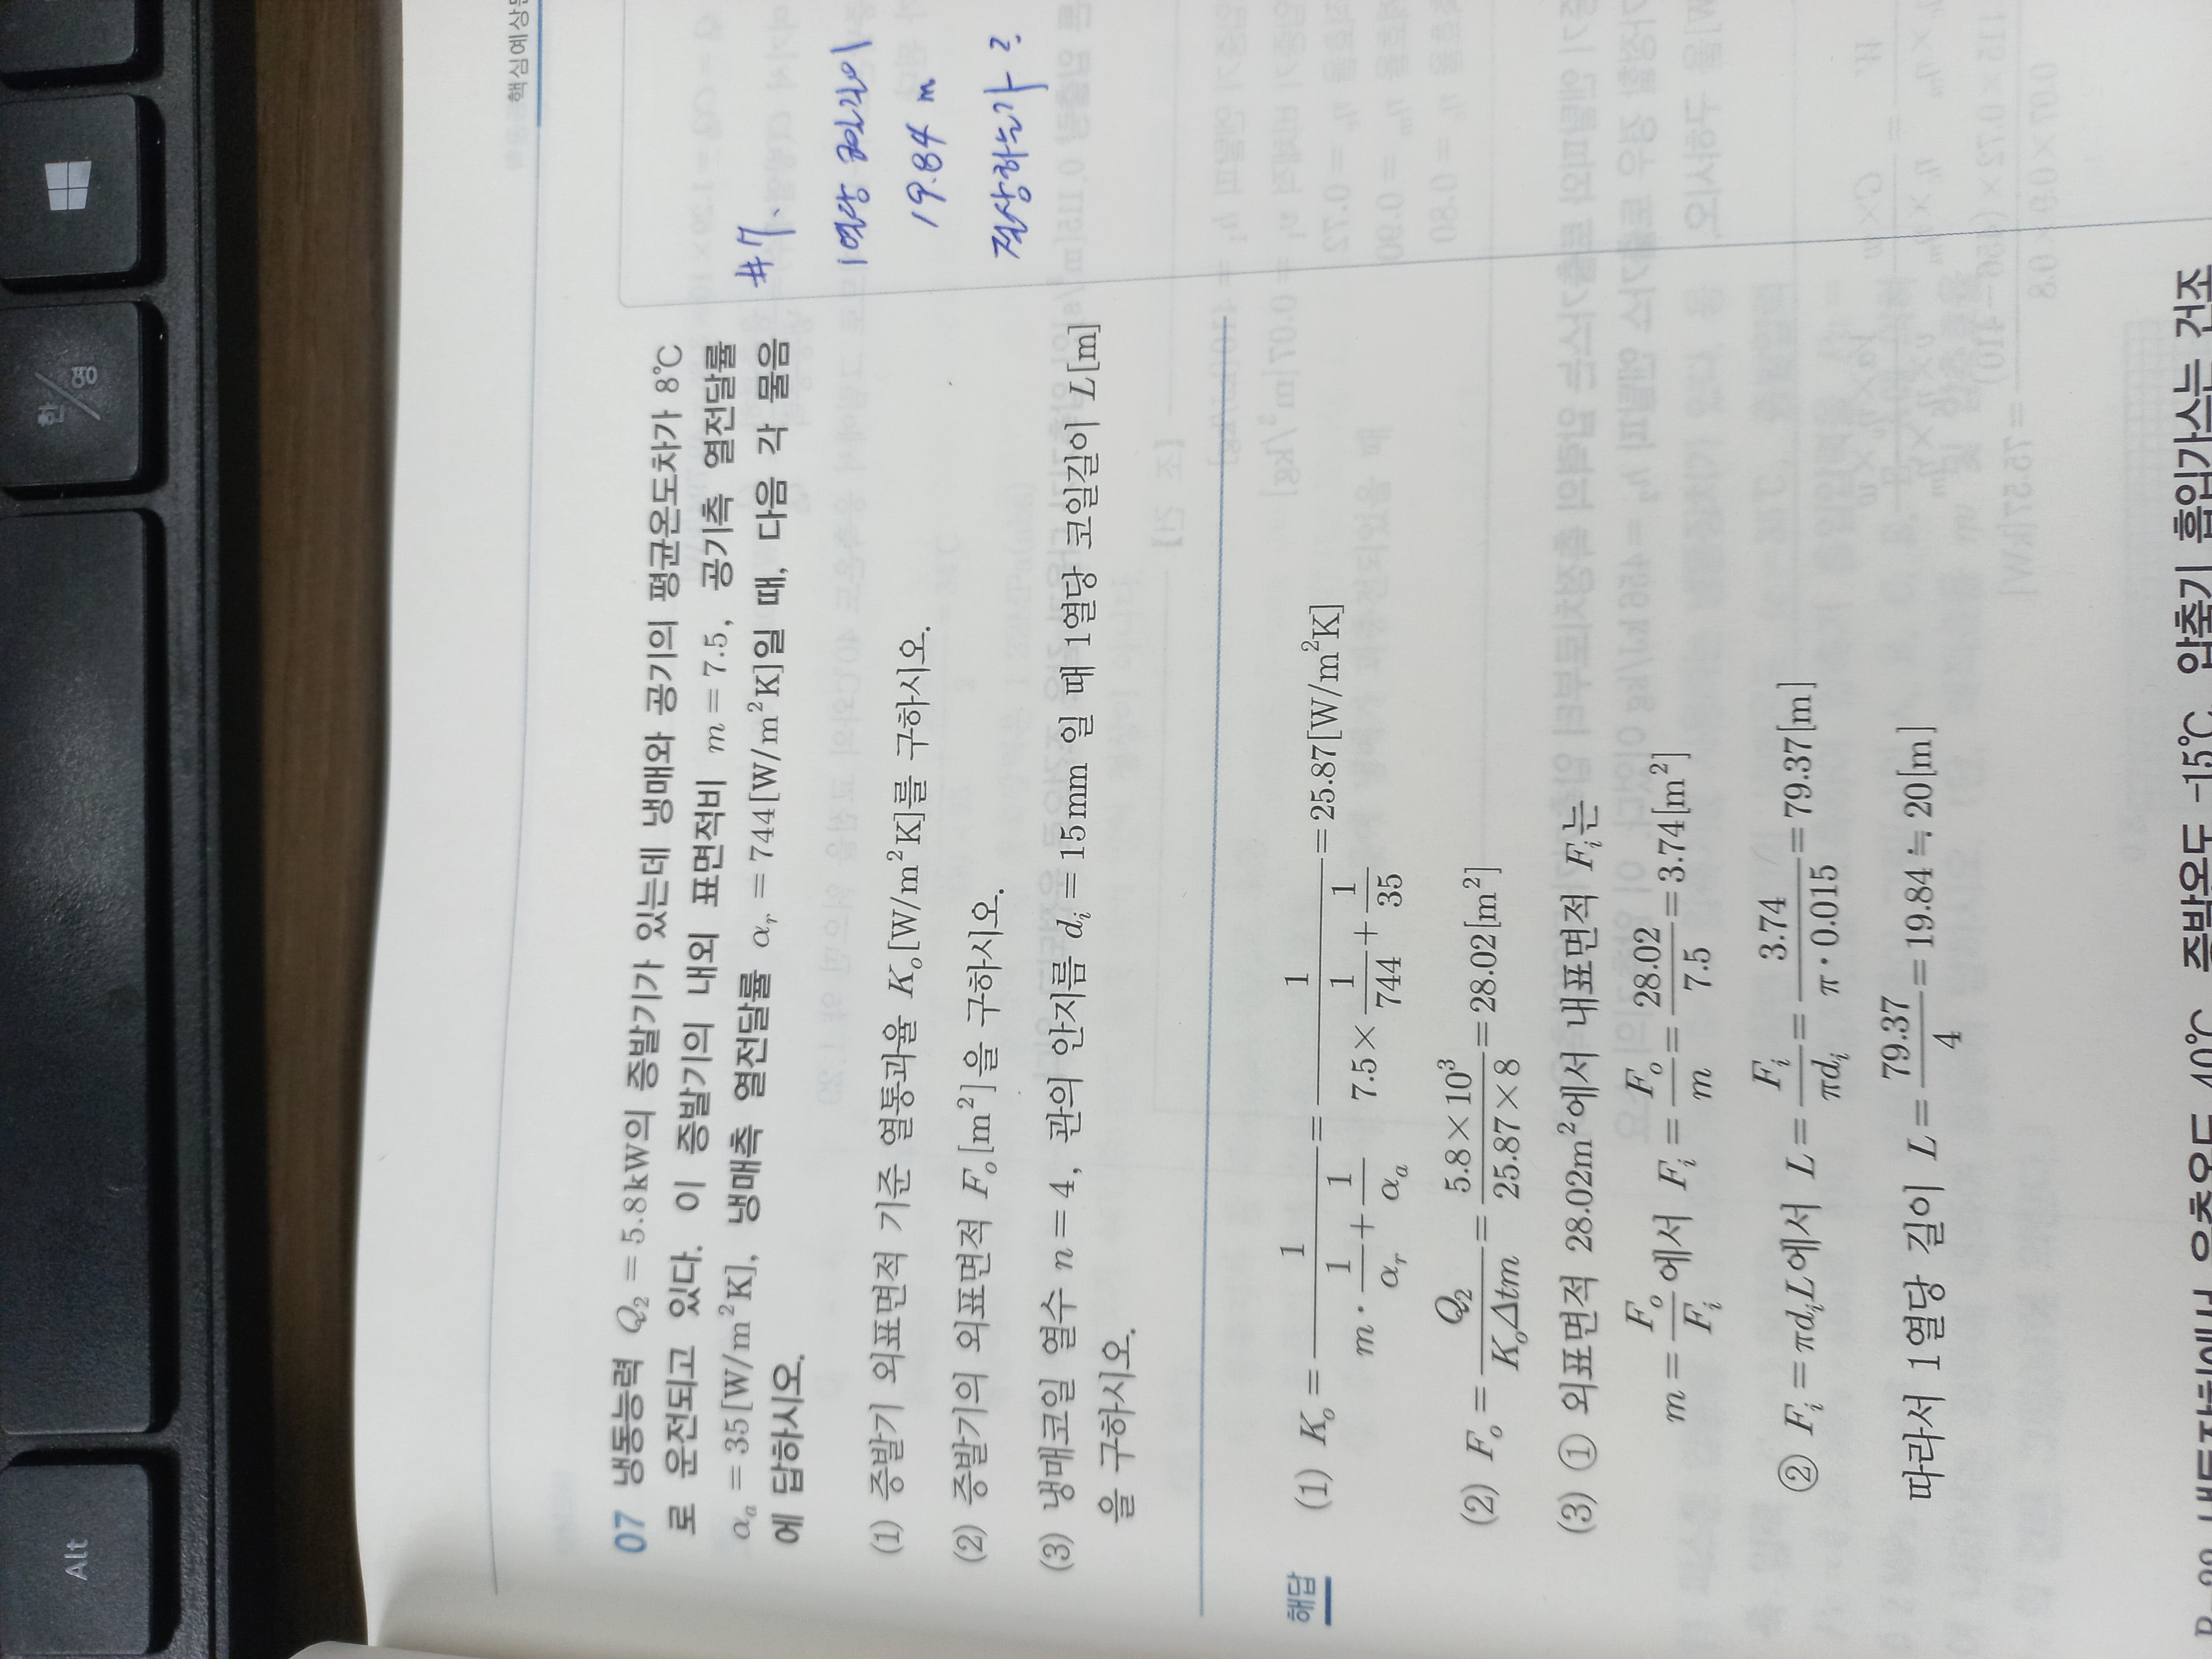 핵심예상문
07 냉동능력 Q₂ = 5.8kW의 증발기가 있는데 냉매와 공기의 평균온도차가 8℃
로 운전되고 있다. 이 증발기의 내외 표면적비 m = 7.5, 공기측 열전달률
αₐ = 35[W/m²K], 냉매측 열전달률 αᵣ = 744[W/m²K]일 때, 다음 각 물음
에 답하시오.
(1) 증발기 외표면적 기준 열통과율 Kₒ[W/m²K]를 구하시오.
(2) 증발기의 외표면적 Fₒ[m²]을 구하시오.
(3) 냉매코일 열수 n = 4, 관의 안지름 dᵢ = 15mm 일 때 1열당 코일길이 L[m]
을 구하시오.
#7.
1열당 코일길이
19.84 m
정상하는가?
해답
(1) Kₒ = 1/(m · 1/αᵣ + 1/αₐ) = 1/(7.5 × 1/744 + 1/35) = 25.87[W/m²K]
(2) Fₒ = Q₂/(KₒΔtm) = (5.8×10³)/(25.87×8) = 28.02[m²]
(3) ① 외표면적 28.02m²에서 내표면적 Fᵢ는
m = Fₒ/Fᵢ 에서 Fᵢ = Fₒ/m = 28.02/7.5 = 3.74[m²]
② Fᵢ = πdᵢL에서 L = Fᵢ/(πdᵢ) = 3.74/(π · 0.015) = 79.37[m]
따라서 1열당 길이 L = 79.37/4 = 19.84 ≒ 20[m]
증발온도 -15℃, 압축기 흡입가스는 건조